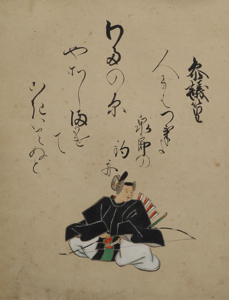 参議篁
わたの原
やそしまかけ
て
こきいてぬと
人にはつけよ
泉郎の
釣舟